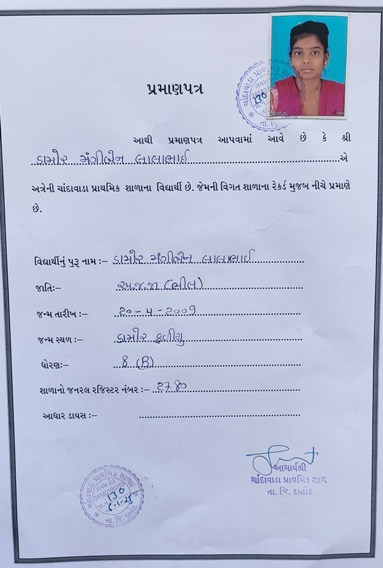 પ્રમાણપત્ર
આથી પ્રમાણપત્ર આપવામાં આવે છે કે શ્રી
ડામોર મંગીબેન લાલાભાઈ એ
અત્રેની ચાંદાવાડા પ્રાથમિક શાળાના વિદ્યાર્થી છે. જેમની વિગત શાળાના રેકર્ડ મુજબ નીચે પ્રમાણે
છે.
વિદ્યાર્થીનું પુરૂ નામ :- ડામોર મંગીબેન લાલાભાઈ
જાતિ:- અ.જ.જા (ભીલ)
જન્મ તારીખ :- ૨૦-૫-૨૦૦૧
જન્મ સ્થળ :- ડામોર ફળીયુ
ધોરણ:- 8 (B)
શાળાનો જનરલ રજિસ્ટર નંબર :- ૨૭૪૦
આધાર ડાયસ :-
આચાર્યશ્રી
ચાંદાવાડા પ્રાથમિક શાળા
તા. જિ. દાહોદ
ચાંદાવાડા પ્રાથમિક શાળા
૧૩૦
તા. જિ.